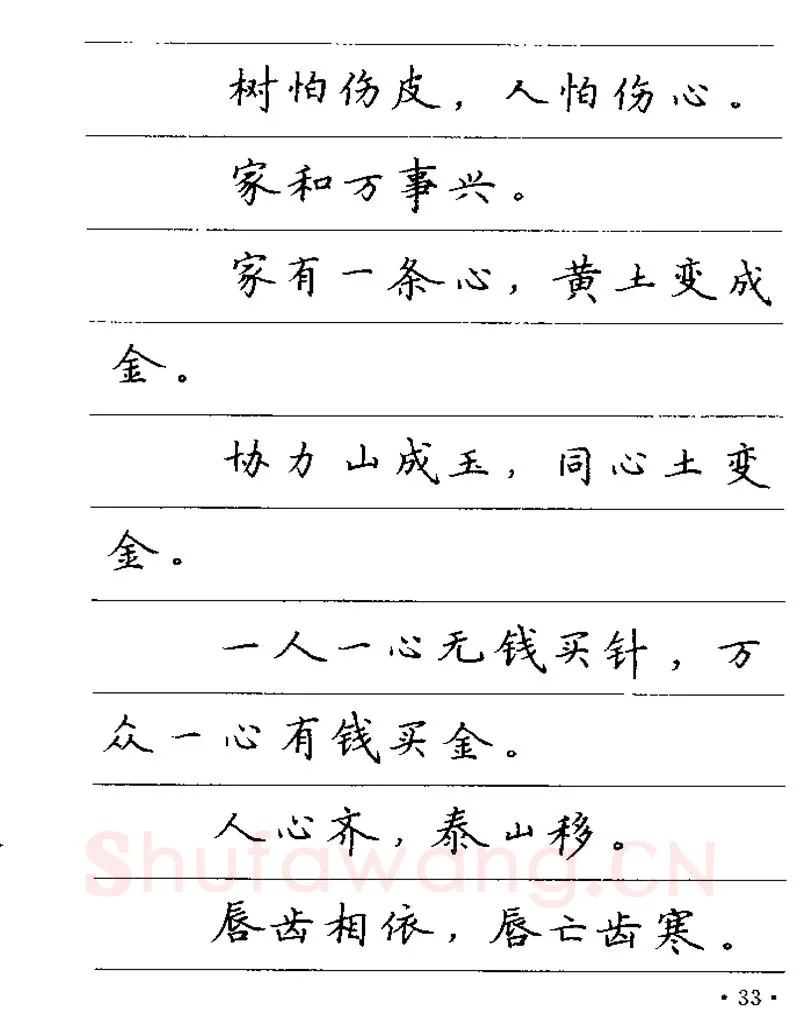 树怕伤皮，人怕伤心。
家和万事兴。
家有一条心，黄土变成
金。
协力山成玉，同心土变
金。
一人一心无钱买针，万
众一心有钱买金。
人心齐，泰山移。
唇齿相依，唇亡齿寒。
Shufawang.CN
·33·